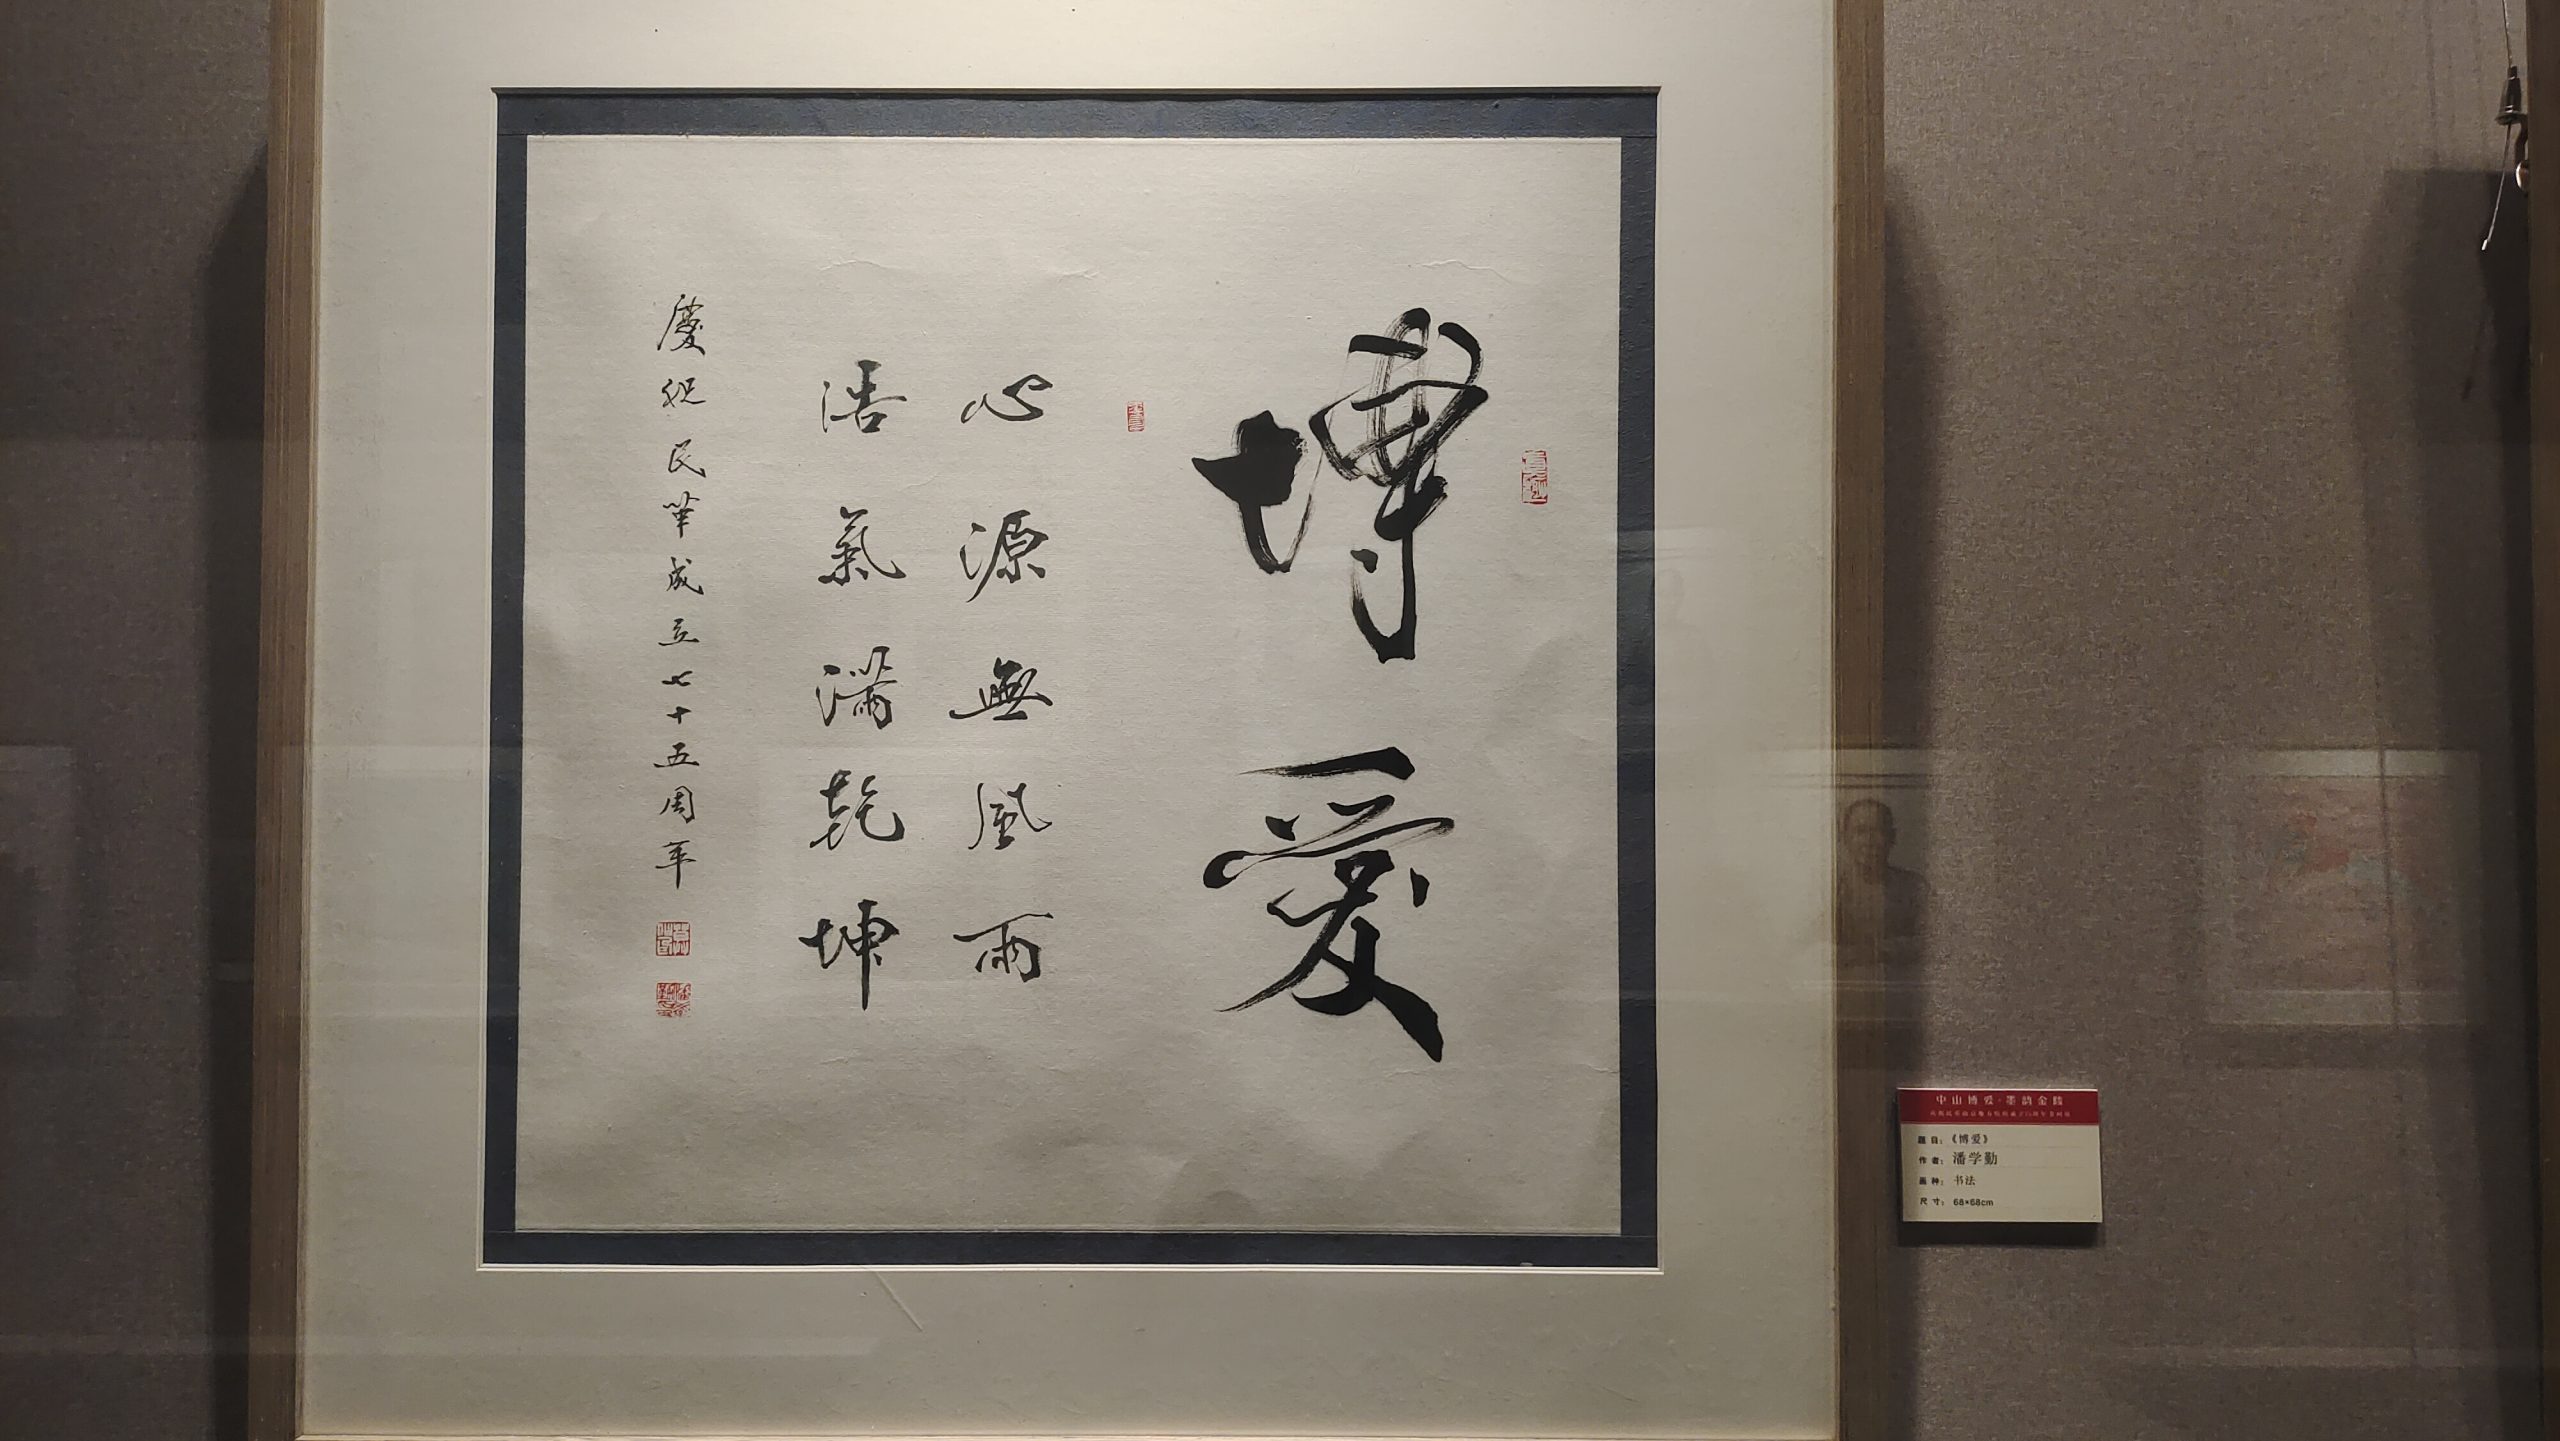 博愛
心源無風雨
浩氣滿乾坤
慶祝民革成立七十五周年
中山博爱·墨韵金陵
题目：《博爱》
作者：潘学勤
画种：书法
尺寸：68×68cm